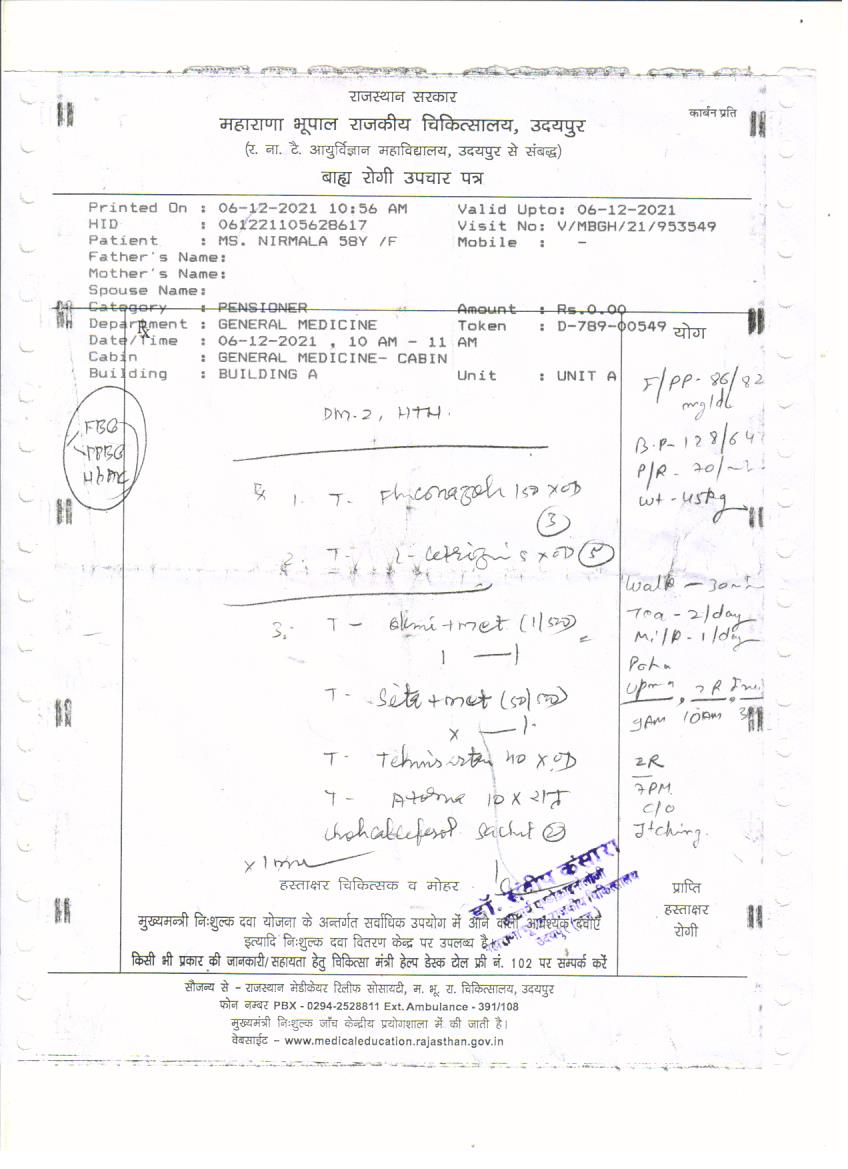 राजस्थान सरकार
कार्बन प्रति
महाराणा भूपाल राजकीय चिकित्सालय, उदयपुर
(र. ना. टै. आयुर्विज्ञान महाविद्यालय, उदयपुर से संबद्ध)
बाह्य रोगी उपचार पत्र
Printed On : 06-12-2021 10:56 AM Valid Upto: 06-12-2021
HID : 061221105628617 Visit No: V/MBGH/21/953549
Patient : MS. NIRMALA 58Y /F Mobile : -
Father's Name:
Mother's Name:
Spouse Name:
Category : PENSIONER Amount : Rs.0.00
Department : GENERAL MEDICINE Token : D-789-00549 योग
Date/Time : 06-12-2021 , 10 AM - 11 AM
Cabin : GENERAL MEDICINE- CABIN
Building : BUILDING A Unit : UNIT A
F/PP - 86/82
mg/dl
DM-2, HTN.
FBG
PPBG
B.P- 128/64
P/R - 70/
Wt - 45kg
1. T-
150 X OD
3
2. T- 5 X OD 5
Walk - 30
Tea - 2/day
Milk - 1/day
Poha
Upma
3. T- Glimi+met (1/500)
1 — 1
T- Sita+met (50/500)
X — 1
9AM 10AM
T- 40 X OD
2R
7PM
C/O
Itching.
T- 10 X
Sachet
हस्ताक्षर चिकित्सक व मोहर
प्राप्ति
हस्ताक्षर
रोगी
मुख्यमन्त्री निःशुल्क दवा योजना के अन्तर्गत सर्वाधिक उपयोग में आने वाली आवश्यक दवाएँ
इत्यादि निःशुल्क दवा वितरण केन्द्र पर उपलब्ध है।
किसी भी प्रकार की जानकारी/सहायता हेतु चिकित्सा मंत्री हेल्प डेस्क टोल फ्री नं. 102 पर सम्पर्क करें
सौजन्य से - राजस्थान मेडीकेयर रिलीफ सोसायटी, म. भू. रा. चिकित्सालय, उदयपुर
फोन नम्बर PBX - 0294-2528811 Ext. Ambulance - 391/108
मुख्यमंत्री निःशुल्क जाँच केन्द्रीय प्रयोगशाला में की जाती है।
वेबसाईट - www.medicaleducation.rajasthan.gov.in